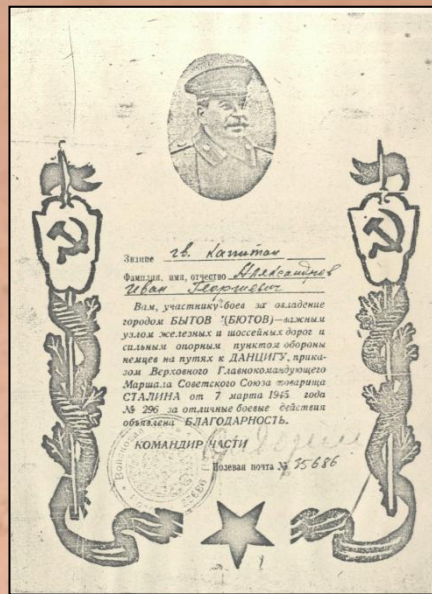 Звание гв. капитан
Фамилия, имя, отчество Александров
Иван Георгиевич
Вам, участнику боев за овладение
городом БЫТОВ (БЮТОВ)—важным
узлом железных и шоссейных дорог и
сильным опорным пунктом обороны
немцев на путях к ДАНЦИГУ, прика-
зом Верховного Главнокомандующего
Маршала Советского Союза товарища
СТАЛИНА от 7 марта 1945 года
№ 296 за отличные боевые действия
объявлена БЛАГОДАРНОСТЬ.
КОМАНДИР ЧАСТИ
Полевая почта № 35686